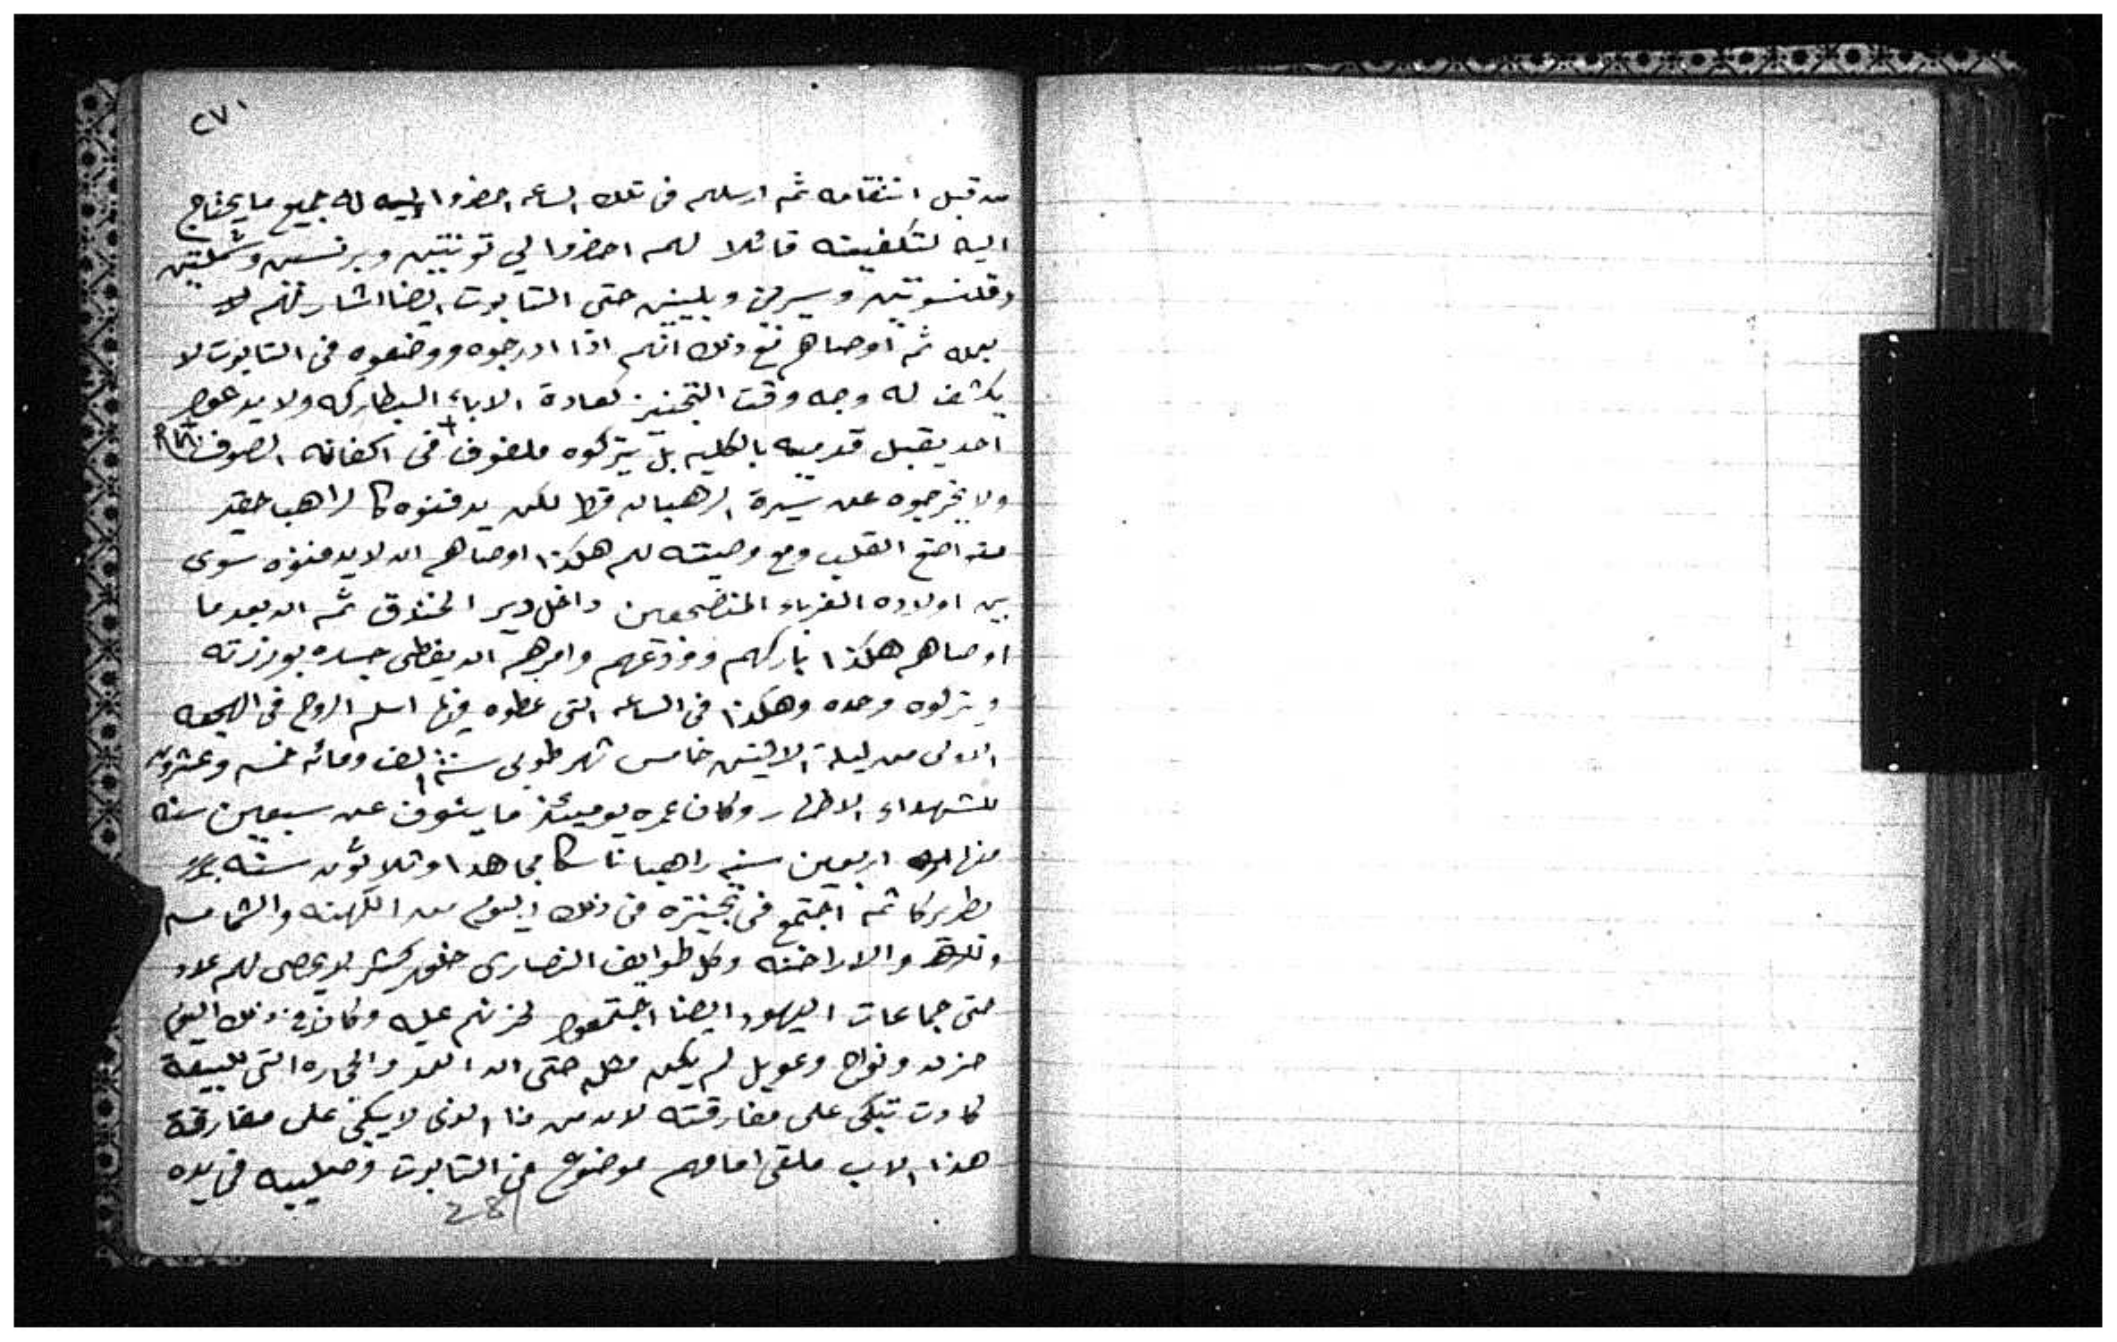 ٢٧١
من قبل انتقامه ثم ارسلهم فى تلك الساعه احضروا اليه له جميع ما يحتاج
اليه لتكفينه قائلا لهم احضروا لي تونيتين وبرنسين وشملتين
وقلنسوتين وسير فى وبلين حتى التابوت ايضا اشار لهم
بعمله ثم اوصاهم مع ذلك انهم اذا ادرجوه ووضعوه فى التابوت لا
يكشف له وجه وقت التجنيز كعادة الاباء البطاركه ولا يدعوا
احد يقبل قدميه بالكليه بل يتركوه ملفوف فى اكفانه الصوف
ولا يخرجوه عن سيرة الرهبان قط لكن يدفنوه كا راهبا حقير
متواضع القلب ومع وصيته لهم هكذا اوصاهم ان لا يدفنوه سوى
بين اولاده الغرباء المتضعين داخل دير الخندق ثم ان بعد ما
اوصاهم هكذا باركهم وودعهم وامرهم ان يغطى جسده بورزته
ويتركوه وحده وهكذا فى الساعه التى غطوه فيها اسلم الروح فى الهجعه
الاولى من ليلة الاثنين خامس شهر طوبى سنة الف ومائه خمسه وعشرون
للشهداء الاطهار وكان عمره يوميئذ ما ينوف عن سبعين سنه
منها اربعين سنه راهبا ناسكا مجاهدا وثلاثون سنه
بطريركا ثم اجتمع فى تجنيزه فى ذلك اليوم من الكهنه والشمامسه
والاراخنه وكل طوايف النصارى خلق كثير لا يحصى لهم عدد
حتى جماعات اليهود ايضا اجتمعوا لحزنهم عليه وكان فى ذلك اليوم
حزن ونواح وعويل لم يكن مثله حتى ان العمد والحجاره التى للبيعة
كادت تبكى على مفارقته لان من ذا الذى لا يبكى على مفارقة
هذا الاب ملقى امامهم موضوع فى التابوت وصليبه فى يده